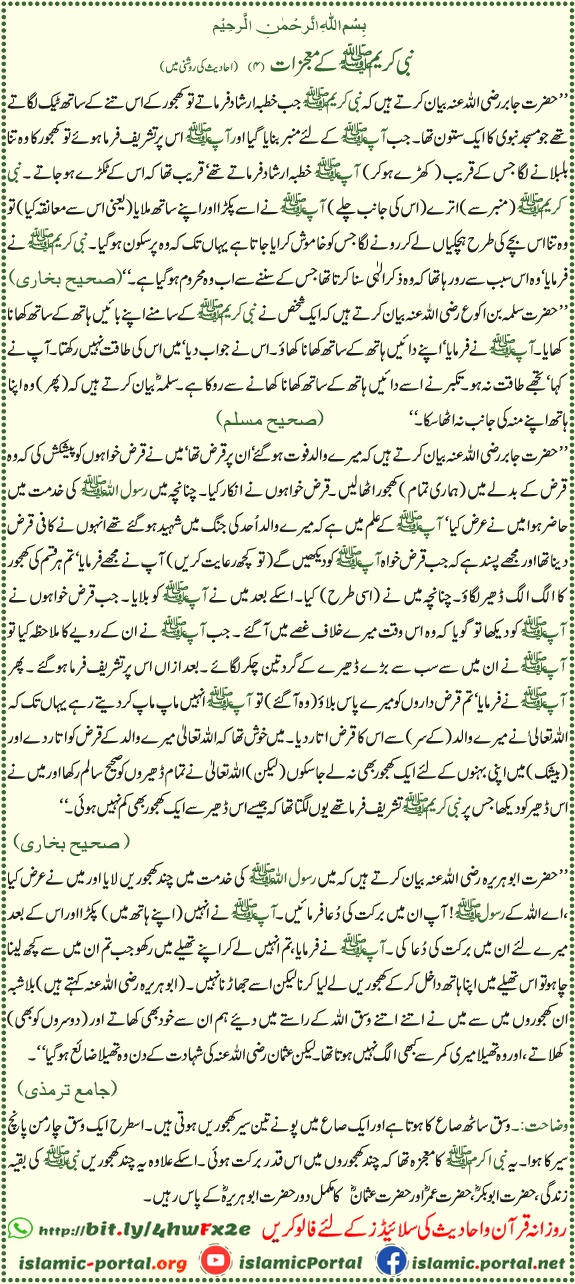 بِسْمِ اللهِ الرَّحْمٰنِ الرَّحِیْمِ
نبی کریم ﷺ کے معجزات (۴) (احادیث کی روشنی میں)
’’حضرت جابر رضی اللہ عنہ بیان کرتے ہیں کہ نبی کریم ﷺ جب خطبہ ارشاد فرماتے تو کھجور کے اس تنے کے ساتھ ٹیک لگاتے
تھے جو مسجد نبوی کا ایک ستون تھا۔ جب آپ ﷺ کے لئے منبر بنایا گیا اور آپ ﷺ اس پر تشریف فرما ہوئے تو کھجور کا وہ تنا
بلبلانے لگا جس کے قریب (کھڑے ہو کر) آپ ﷺ خطبہ ارشاد فرماتے تھے‘ قریب تھا کہ اس کے ٹکڑے ہو جاتے۔ نبی
کریم ﷺ (منبر سے) اترے (اس کی جانب چلے) آپ ﷺ نے اسے پکڑا اور اپنے ساتھ ملایا (یعنی اس سے معانقہ کیا) تو
وہ تنا اس بچے کی طرح ہچکیاں لے کر رونے لگا جس کو خاموش کرایا جاتا ہے یہاں تک کہ وہ پر سکون ہوگیا۔ نبی کریم ﷺ نے
فرمایا‘ وہ اس سبب سے رو رہا تھا کہ وہ ذکر الٰہی سنا کرتا تھا جس کے سننے سے اب وہ محروم ہوگیا ہے۔‘‘ (صحیح بخاری)
’’حضرت سلمہ بن اکوع رضی اللہ عنہ بیان کرتے ہیں کہ ایک شخص نے نبی کریم ﷺ کے سامنے اپنے بائیں ہاتھ کے ساتھ کھانا
کھایا۔ آپ ﷺ نے فرمایا‘ اپنے دائیں ہاتھ کے ساتھ کھانا کھاؤ۔ اس نے جواب دیا‘ میں اس کی طاقت نہیں رکھتا۔ آپ نے
کہا‘ تجھے طاقت نہ ہو۔ تکبر نے اسے دائیں ہاتھ کے ساتھ کھانا کھانے سے روکا ہے۔ سلمہؓ بیان کرتے ہیں کہ (پھر) وہ اپنا
ہاتھ اپنے منہ کی جانب نہ اٹھا سکا۔‘‘ (صحیح مسلم)
’’حضرت جابر رضی اللہ عنہ بیان کرتے ہیں کہ میرے والد فوت ہوگئے‘ ان پر قرض تھا‘ میں نے قرض خواہوں کو پیشکش کی کہ وہ
قرض کے بدلے میں (ہماری تمام) کھجور اٹھالیں۔ قرض خواہوں نے انکار کیا۔ چنانچہ میں رسول اللہ ﷺ کی خدمت میں
حاضر ہوا میں نے عرض کیا‘ آپ ﷺ کے علم میں ہے کہ میرے والد اُحد کی جنگ میں شہید ہوگئے تھے انہوں نے کافی قرض
دینا تھا اور مجھے پسند ہے کہ جب قرض خواہ آپ ﷺ کو دیکھیں گے (تو کچھ رعایت کریں) آپ نے مجھے فرمایا‘ تم ہر قسم کی کھجور
کا الگ الگ ڈھیر لگاؤ۔ چنانچہ میں نے (اسی طرح) کیا۔ اسکے بعد میں نے آپ ﷺ کو بلایا۔ جب قرض خواہوں نے
آپ ﷺ کو دیکھا تو گویا کہ وہ اس وقت میرے خلاف غصے میں آگئے۔ جب آپ ﷺ نے ان کے رویے کا ملاحظہ کیا تو
آپ ﷺ نے ان میں سے سب سے بڑے ڈھیرے کے گرد تین چکر لگائے۔ بعد ازاں اس پر تشریف فرما ہوگئے۔ پھر
آپ ﷺ نے فرمایا‘ تم قرض داروں کو میرے پاس بلاؤ (وہ آگئے) تو آپ ﷺ انہیں ماپ ماپ کر دیتے رہے یہاں تک کہ
اللہ تعالیٰ نے میرے والد (کے سر) سے اس کا قرض اتار دیا۔ میں خوش تھا کہ اللہ تعالیٰ میرے والد کے قرض کو اتار دے اور
(بیشک) میں اپنی بہنوں کے لئے ایک کھجور بھی نہ لے جا سکوں (لیکن) اللہ تعالیٰ نے تمام ڈھیروں کو صحیح سالم رکھا اور میں نے
اس ڈھیر کو دیکھا جس پر نبی کریم ﷺ تشریف فرما تھے یوں لگتا تھا کہ جیسے اس ڈھیر سے ایک کھجور بھی کم نہیں ہوئی۔‘‘
(صحیح بخاری)
’’حضرت ابو ہریرہ رضی اللہ عنہ بیان کرتے ہیں کہ میں رسول اللہ ﷺ کی خدمت میں چند کھجوریں لایا اور میں نے عرض کیا
،اے اللہ کے رسول ﷺ! آپ ان میں برکت کی دُعا فرمائیں۔ آپ ﷺ نے انہیں (اپنے ہاتھ میں) پکڑا اور اس کے بعد
میرے لئے ان میں برکت کی دُعا کی۔ آپ ﷺ نے فرمایا، تم انہیں لے کر اپنے تھیلے میں رکھو جب تم ان میں سے کچھ لینا
چاہو تو اس تھیلے میں اپنا ہاتھ داخل کر کے کھجوریں لے لیا کرنا لیکن اسے جھاڑنا نہیں۔ (ابو ہریرہ رضی اللہ عنہ کہتے ہیں) بلاشبہ
ان کھجوروں میں سے میں نے اتنے اتنے وسق اللہ کے راستے میں دیئے ہم ان سے خود بھی کھاتے اور (دوسروں کو بھی)
کھلاتے، اور وہ تھیلا میری کمر سے کبھی الگ نہیں ہوتا تھا۔ لیکن عثمان رضی اللہ عنہ کی شہادت کے دن وہ تھیلا ضائع ہوگیا‘‘۔
(جامع ترمذی)
وضاحت:۔ وسق ساٹھ صاع کا ہوتا ہے اور ایک صاع میں پونے تین سیر کھجوریں ہوتی ہیں۔ اسطرح ایک وسق چار من پانچ
سیر کا ہوا۔ یہ نبی اکرم ﷺ کا معجزہ تھا کہ چند کھجوروں میں اس قدر برکت ہوئی۔ اسکے علاوہ یہ چند کھجوریں نبی ﷺ کی بقیہ
زندگی، حضرت ابوبکرؓ، حضرت عمرؓ اور حضرت عثمانؓ کا مکمل دور حضرت ابو ہریرہؓ کے پاس رہیں۔
روزانہ قرآن و احادیث کی سلائیڈز کے لئے فالو کریں http://bit.ly/4hwFx2e
islamic-portal.org islamicPortal islamic.portal.net